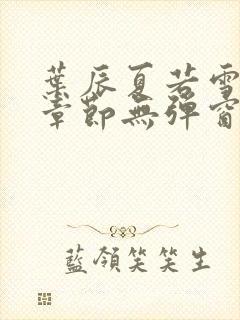 葉辰夏若雪
章節無彈窗
藍領笑笑生